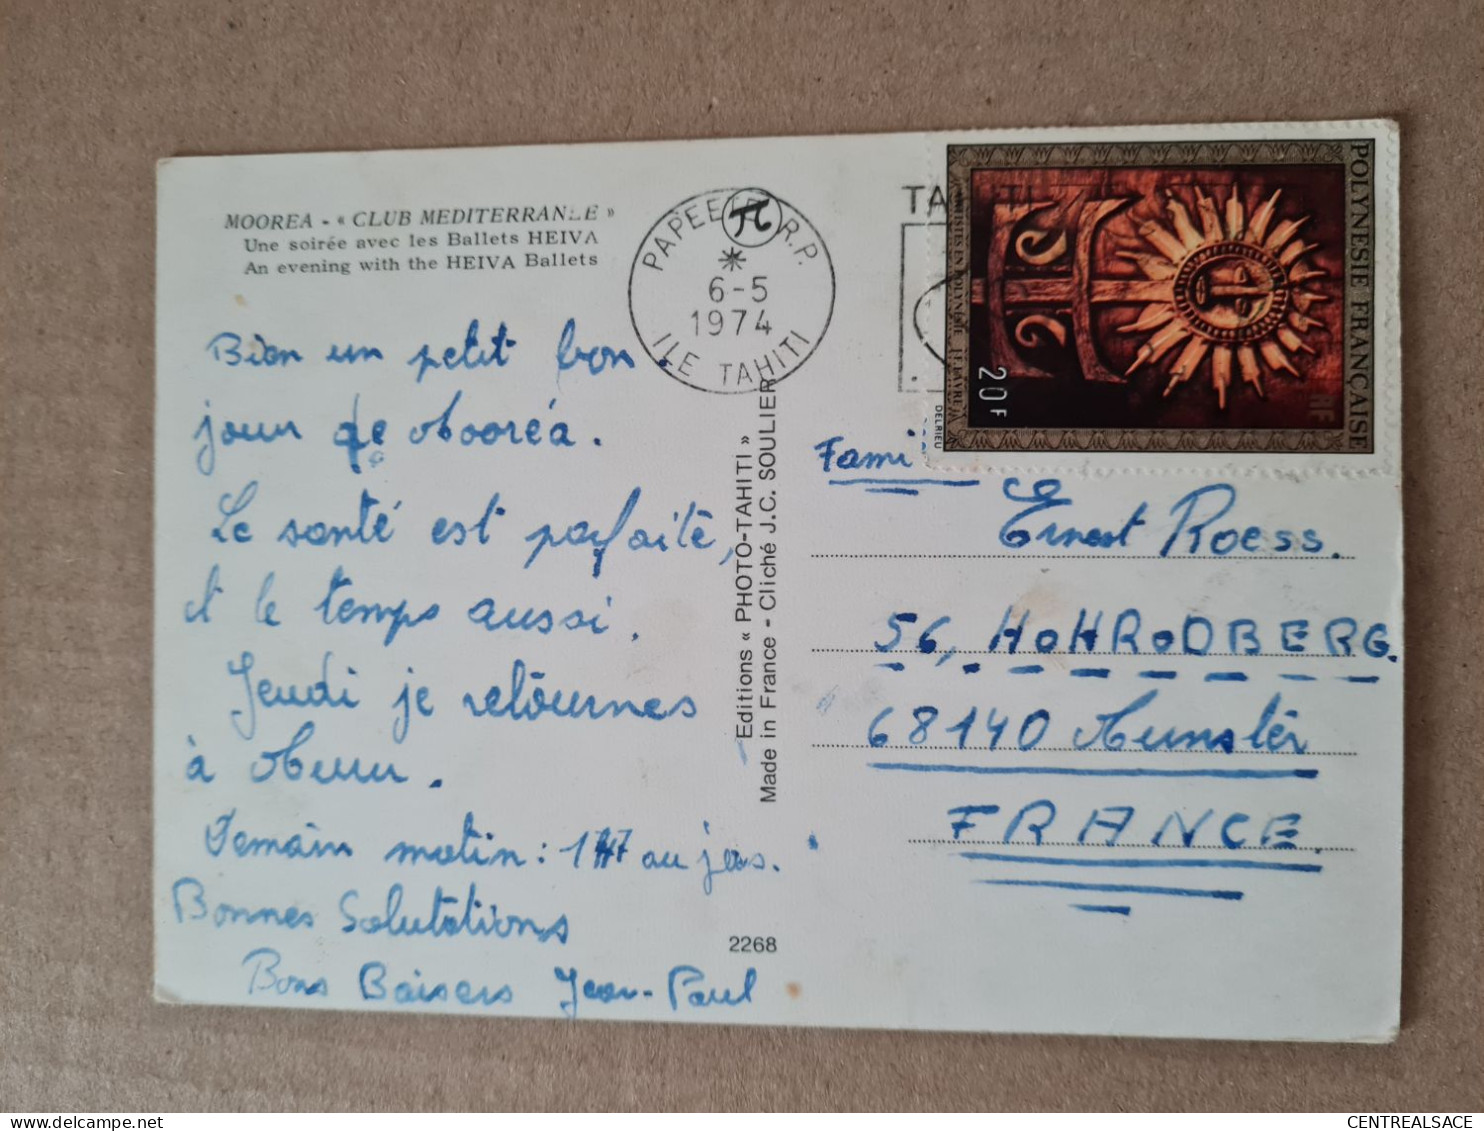 MOOREA - « CLUB MEDITERRANEE »
Une soirée avec les Ballets HEIVA
An evening with the HEIVA Ballets
Bien un petit bon
jour de Mooréa.
La santé est parfaite,
et le temps aussi.
Jeudi je retournes
à Muru.
Demain matin : 147 au jus.
Bonnes Salutations
Bons Baisers Jean-Paul
2268
Editions « PHOTO-TAHITI »
Made in France - Cliché J.C. SOULIER
PAPEETE R.P.
6-5
1974
ILE TAHITI
TAHITI
POLYNESIE FRANÇAISE
RF
ARTISTES EN POLYNESIE J.F. FAVRE
20F
DELRIEU
Famille
Ernest Roess.
56, HOHRODBERG.
68140 Munster
FRANCE.
CENTREALSACE